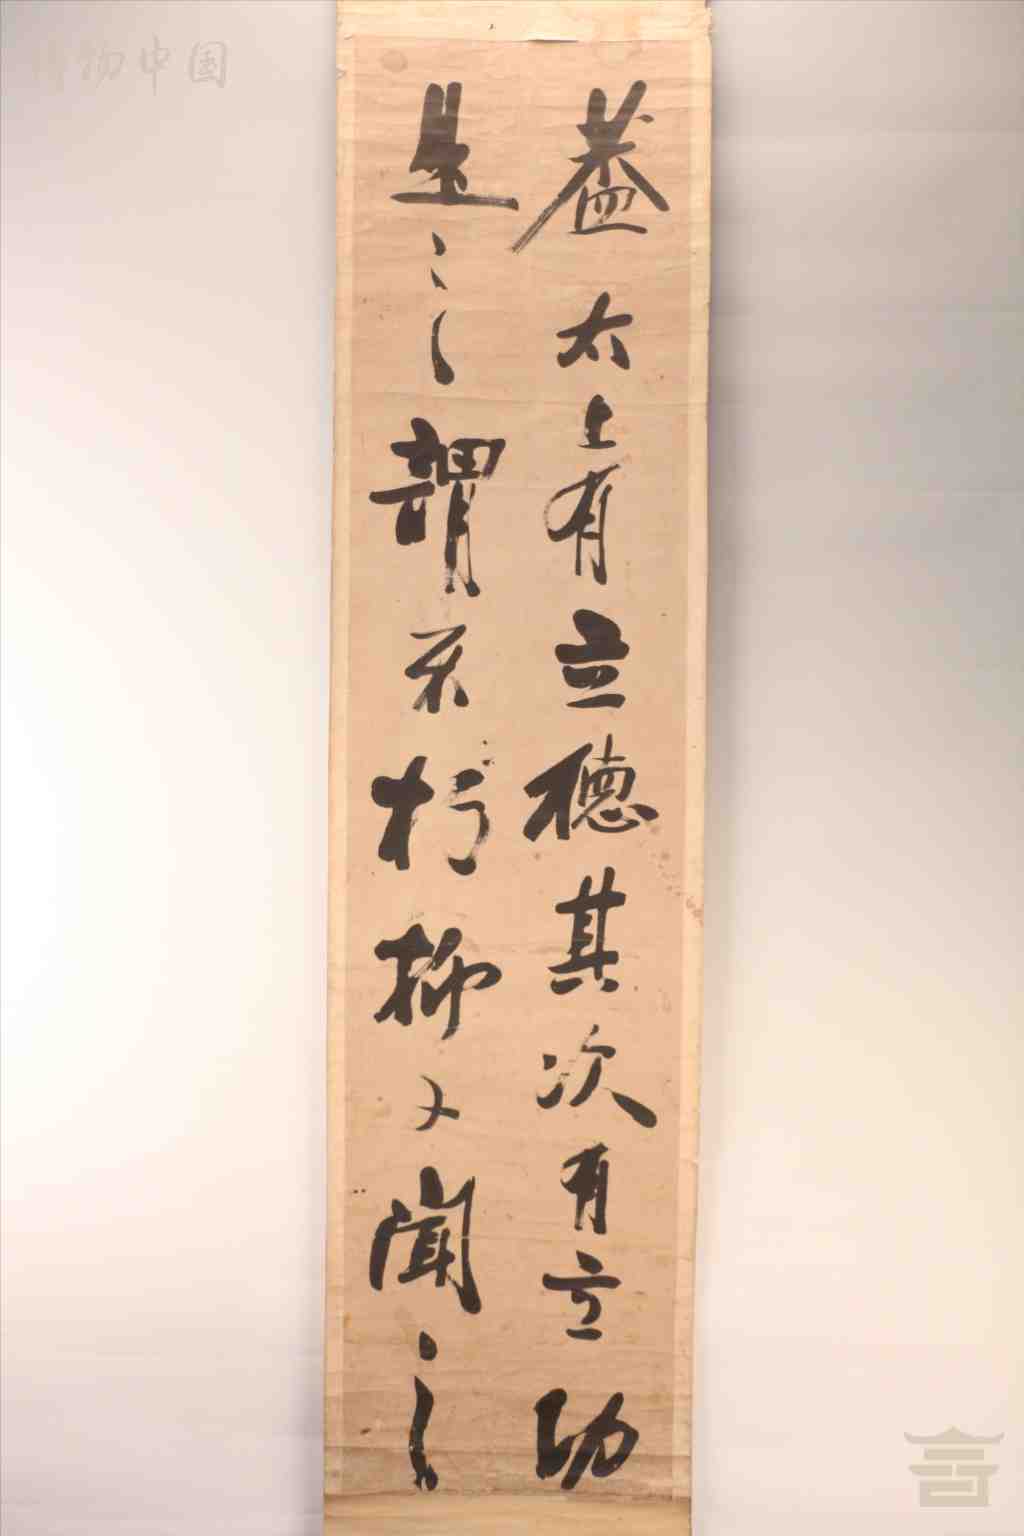 蓋太上有立德其次有立功
是之謂不朽抑又聞之
博物中国